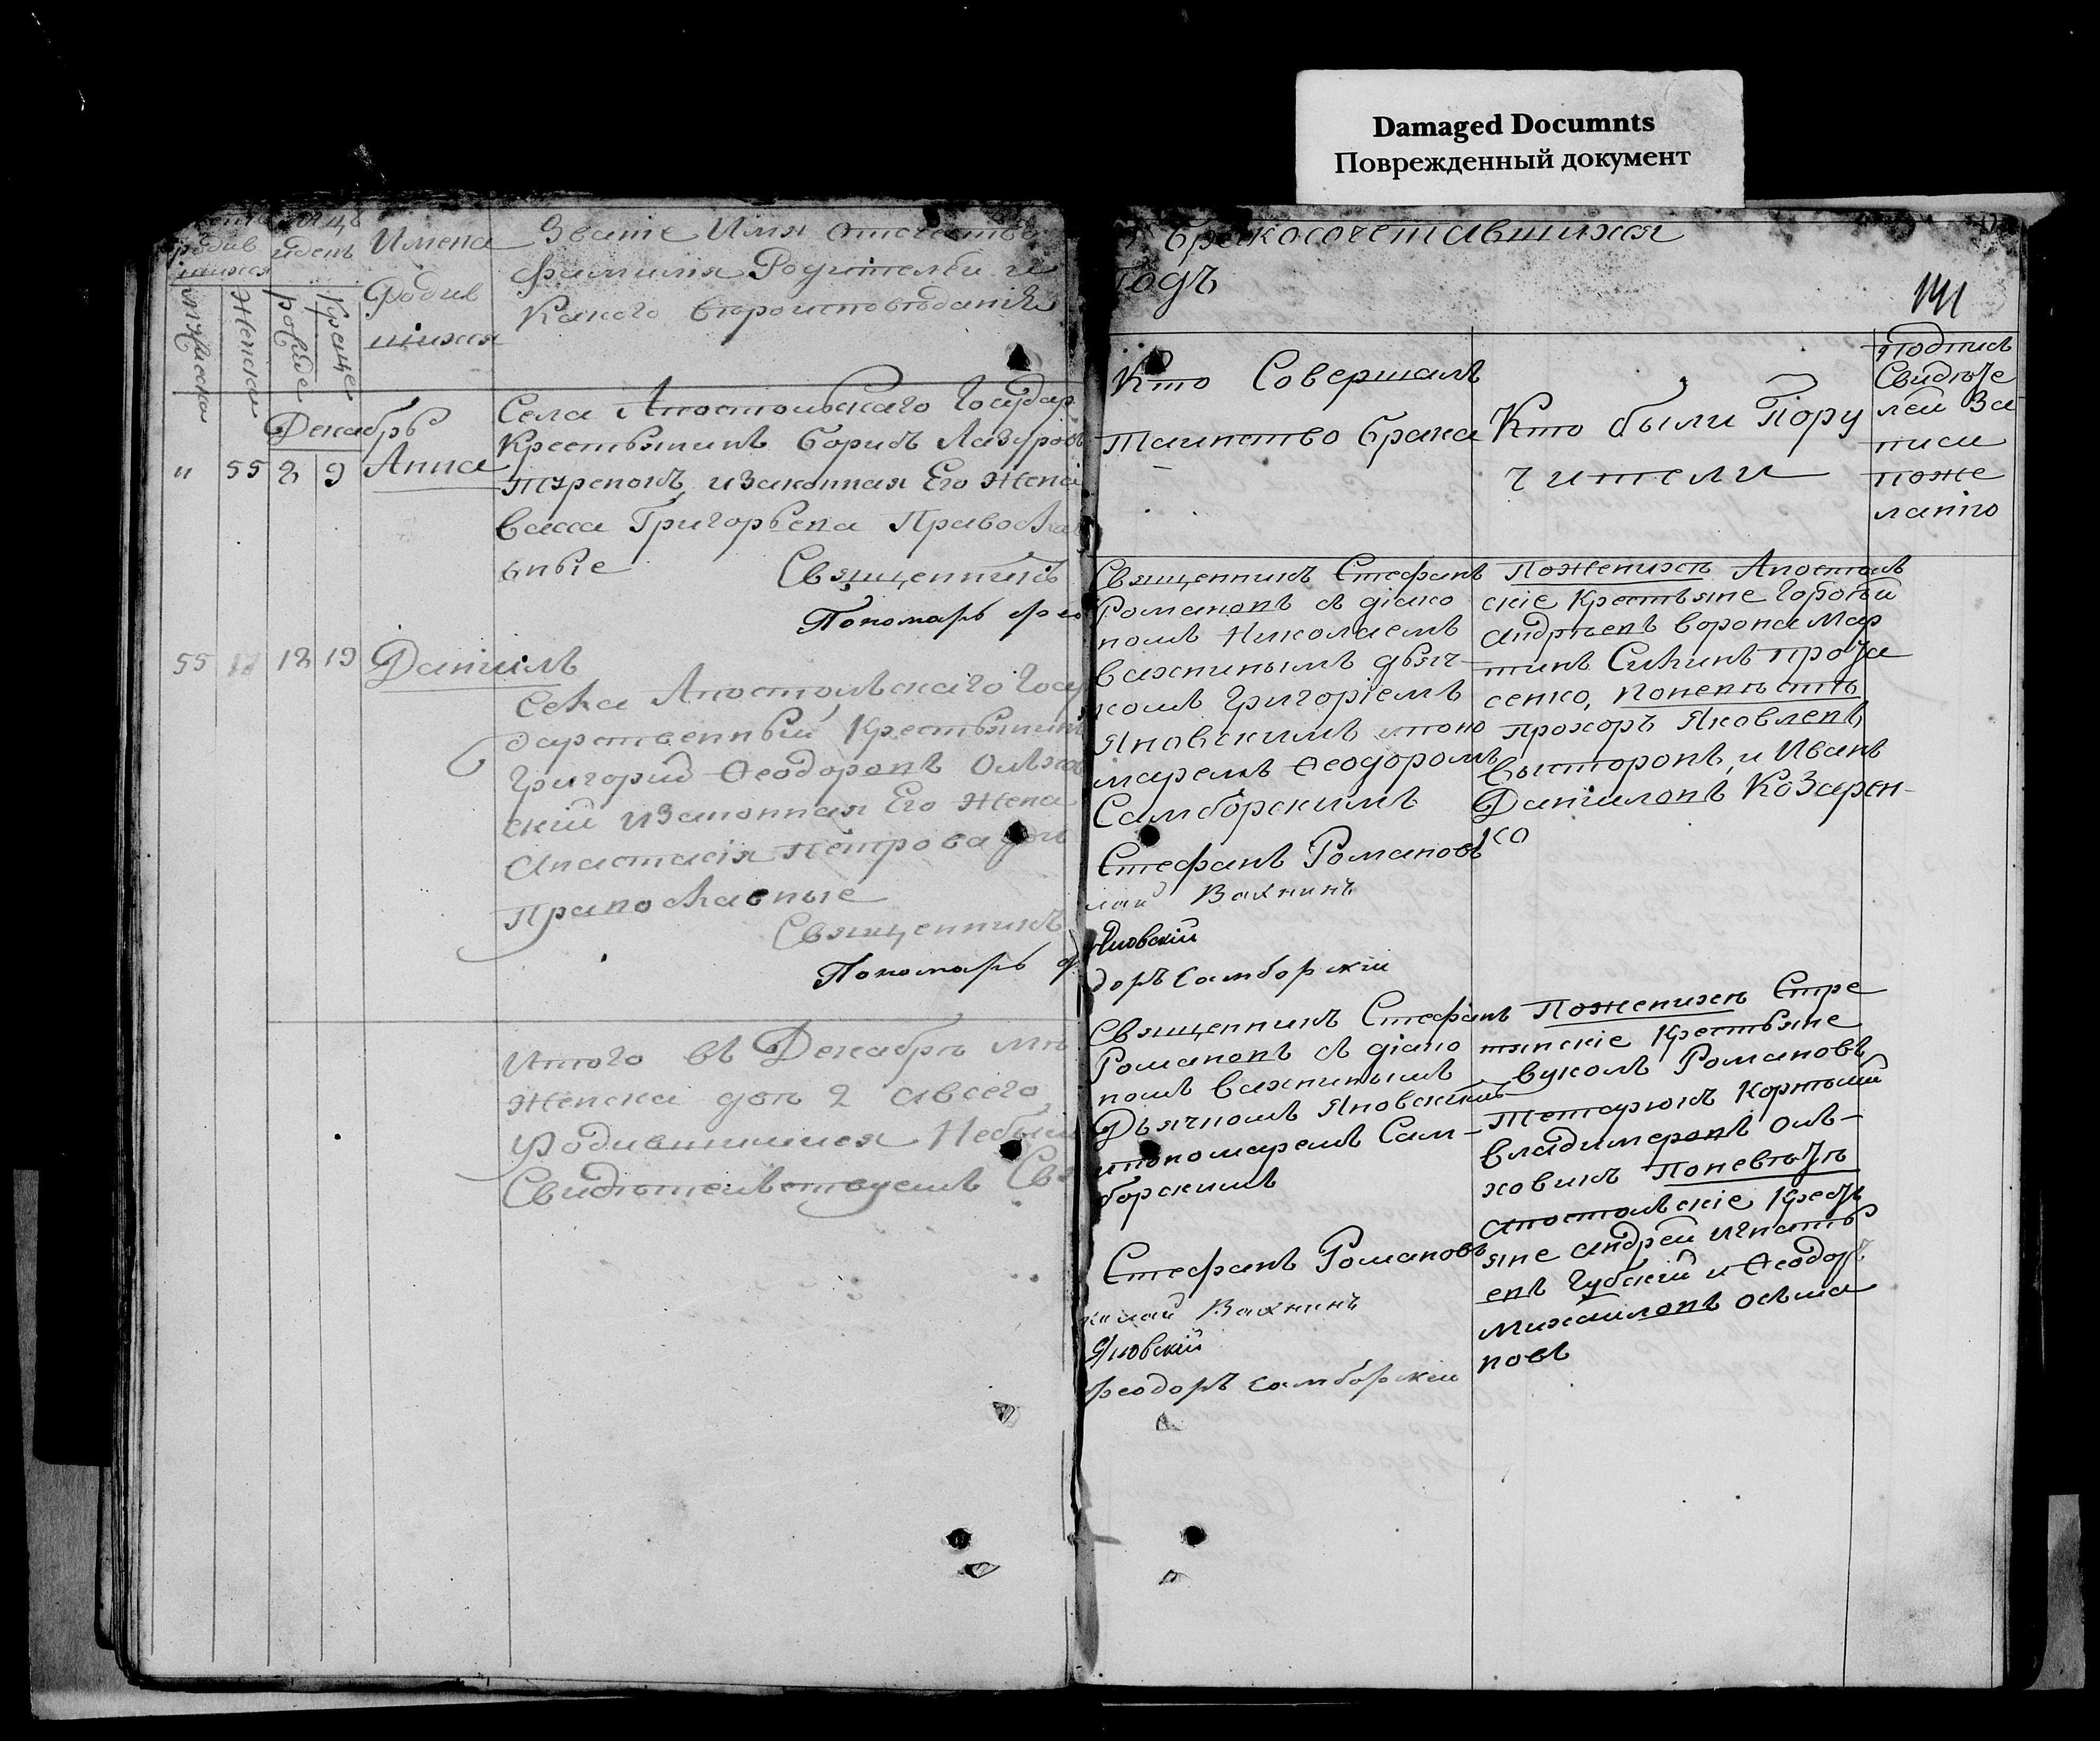 Damaged Documnts
Поврежденный документ
родив
шихся
идень
Имена
Родив
шихся
Званіе Имя Отечество
фамилія Родителей и
Какого вероисповѣданія
Мужеска
Женска
рожде
Креще
Декабрь
" 55 2 9 Анна
Села Апостольскаго Государ
Крестьянинъ Борисъ Лазуровъ
и законная Его Жена
Васса Григорьева Православ
ные
Священникъ
Пономарь Фео
55 12 19 Даніилъ
Села Апостольскаго Госу
дарственный Крестьянинъ
Григорий Ѳеодоровъ Ольхов
ский и законная Его Жена
Анастасія Петрова
Православные
Священникъ
Пономарь
Итого въ Декабрѣ
женска 2 а всего
Родившимися
Свидѣтельствуемъ
бракосочетавшихся
Годъ
141
Кто Совершалъ
таинство брака
Кто были Пору
чители
подпись
Свидѣте
лей За
писи
по же
ланію
Священникъ Стефанъ
Романовъ съ діако
номъ Николаемъ
Вахнинымъ дьяч
комъ Григоріемъ
Яновскимъ и поно
маремъ Ѳеодоромъ
Самборскимъ
Стефанъ Романовъ
лай Вахнинъ
Яновскій
доръ Самборскій
По женихѣ Апостоль
скіе Крестьяне Гордѣй
Андрѣевъ Ворона Мар
тинъ
сенко, По невѣстѣ
Прохоръ Яковлевъ
Высторопъ, и Иванъ
Даниловъ Козарен-
ко
Священникъ Стефанъ
Романовъ съ діако
номъ Вахнинымъ
Дьячкомъ Яновскимъ
и пономаремъ Сам-
борскимъ
Стефанъ Романовъ
колай Вахнинъ
Яновскій
Феодоръ Самборскій
По женихѣ Стре
тинскіе Крестьяне
Вуколъ Романовъ
Тетарюкъ
Владимеровъ Оль-
ховикъ По невѣстѣ
Апостольскіе Кресть
яне Андрей Игнатьъ
евъ Губскій и Ѳеодоръ
Михаиловъ Осьма
новъ